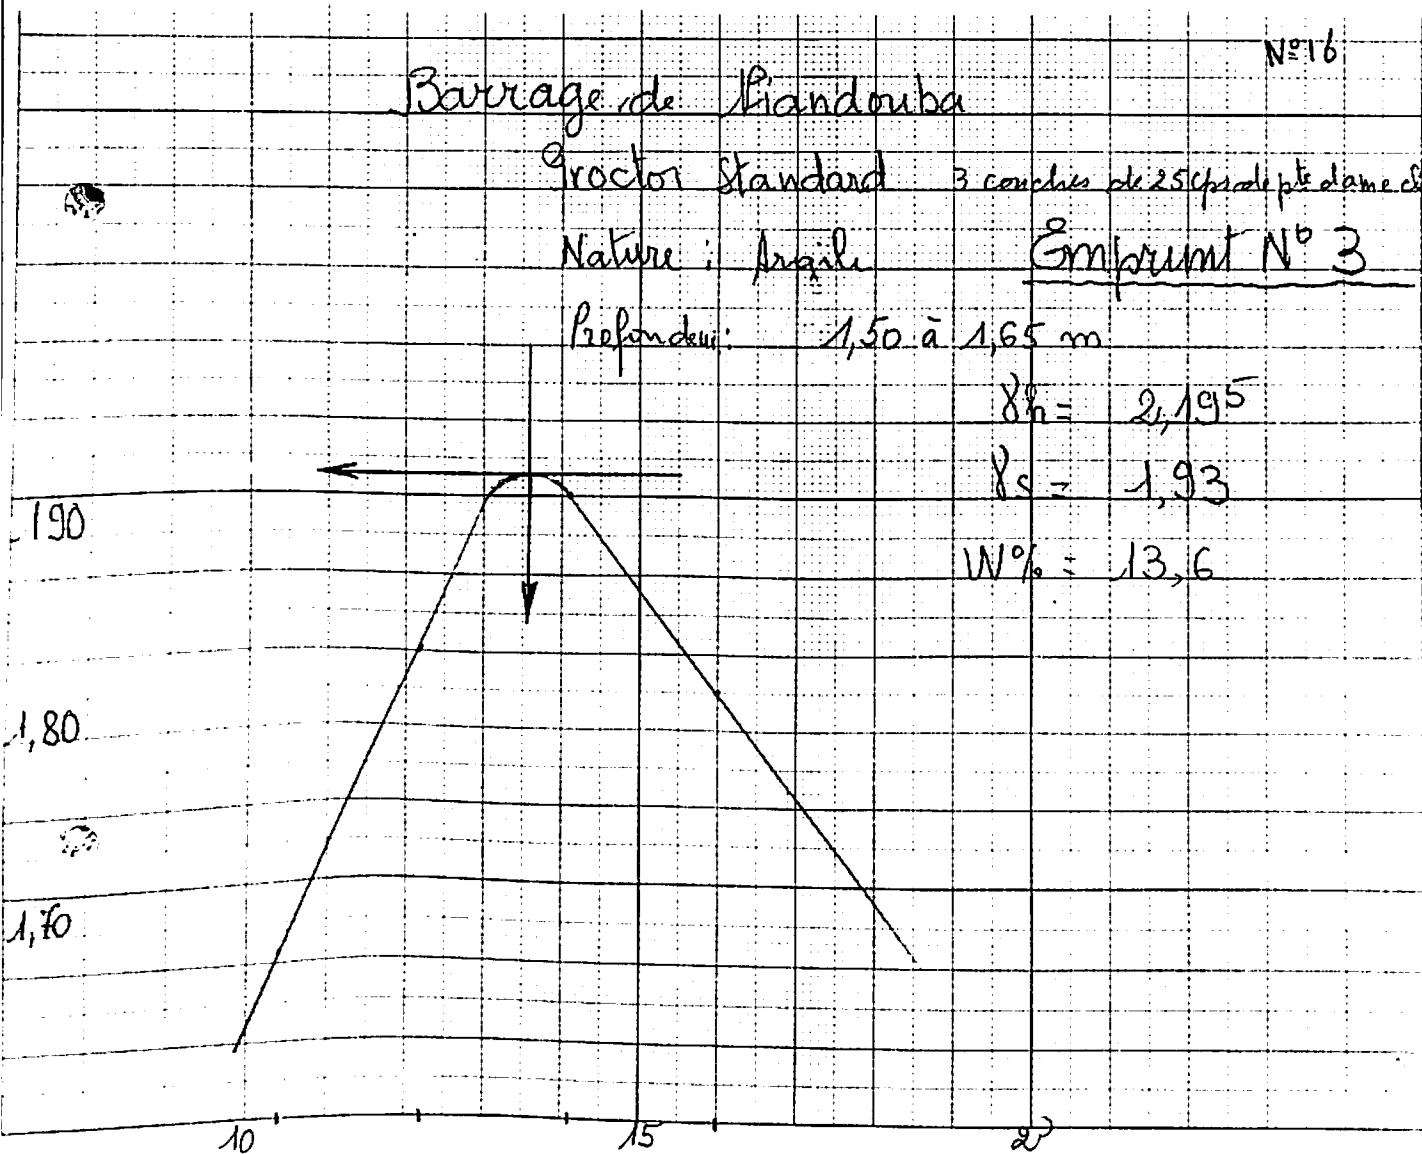 N° 16
Barrage de Niandouba
Proctor Standard 3 couches de 25 cps de pte dame
Nature : Argile Emprunt N° 3
Profondeur : 1,50 à 1,65 m
γh = 2,195
γs = 1,93
W% = 13,6
190
1,80
1,70
10 15 2